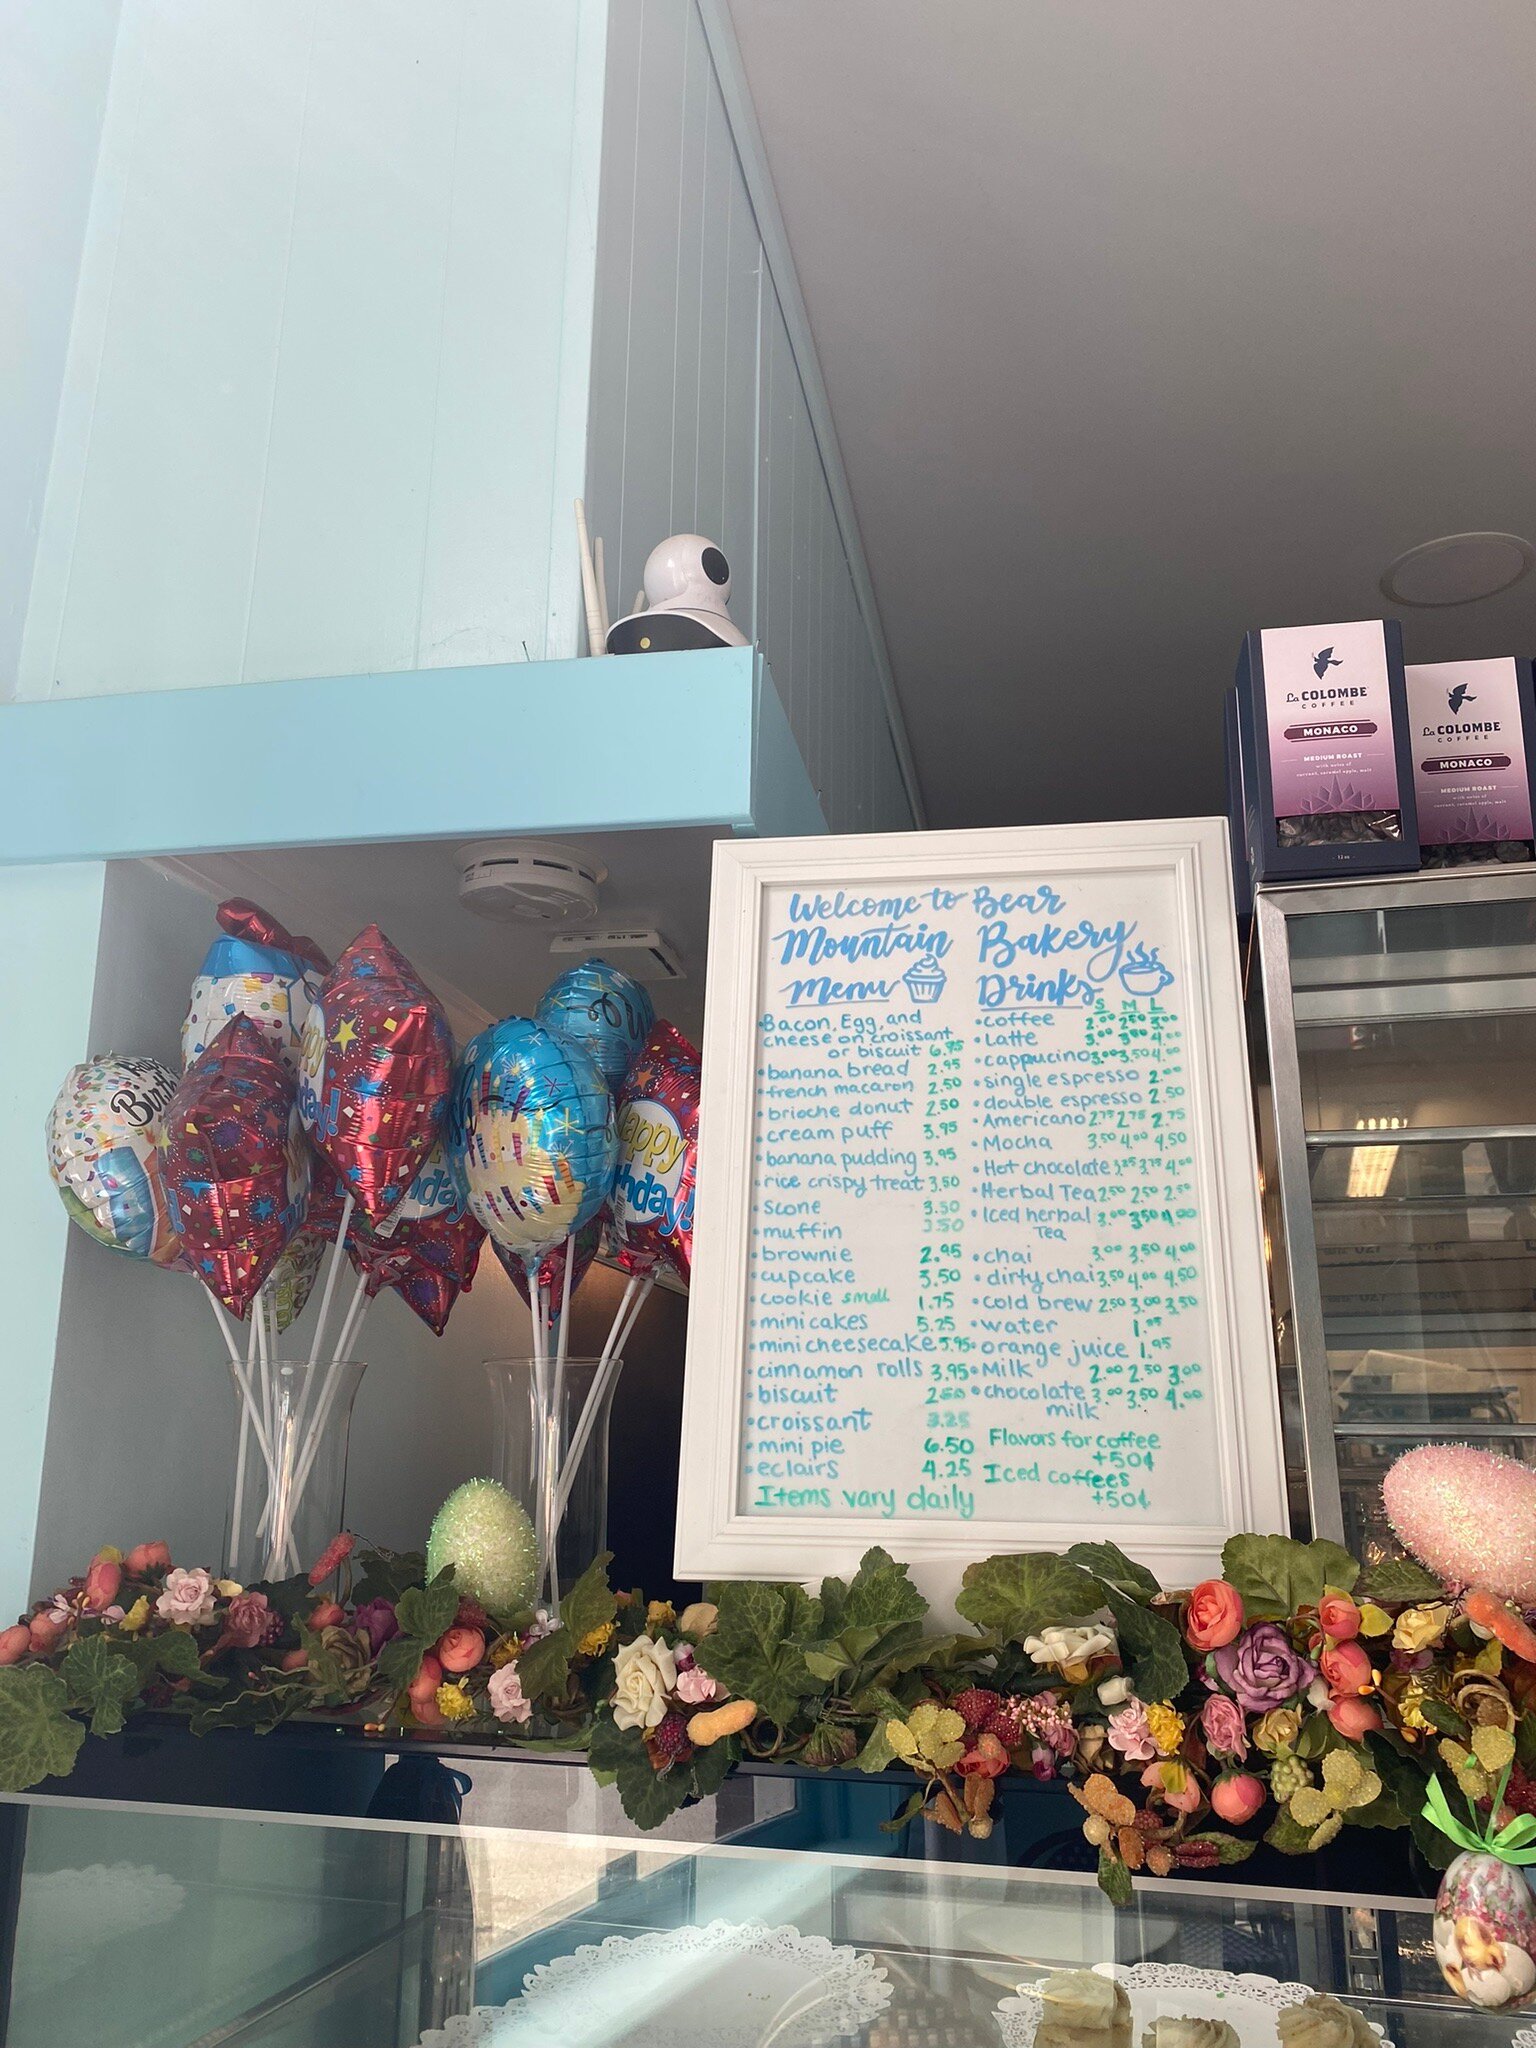 Welcome to Bear
Mountain Bakery
Menu
• Bacon, Egg, and
cheese on croissant
or biscuit 6.75
• banana bread 2.95
• french macaron 2.50
• brioche donut 2.50
• cream puff 3.95
• banana pudding 3.95
• rice crispy treat 3.50
• scone 3.50
• muffin 3.50
• brownie 2.95
• cupcake 3.50
• cookie small 1.75
• mini cakes 5.25
• mini cheesecake 5.95
• cinnamon rolls 3.95
• biscuit 2.50
• croissant 3.25
• mini pie 6.50
• eclairs 4.25
Items vary daily
Drinks
S M L
• coffee 2.00 2.50 3.00
• Latte 3.00 3.50 4.00
• cappucino 3.00 3.50 4.00
• single espresso 2.00
• double espresso 2.50
• Americano 2.75 2.75 2.75
• Mocha 3.50 4.00 4.50
• Hot chocolate 3.25 3.75 4.00
• Herbal Tea 2.50 2.50 2.50
• Iced herbal 3.00 3.50 4.00
Tea
• chai 3.00 3.50 4.00
• dirty chai 3.50 4.00 4.50
• cold brew 2.50 3.00 3.50
• water
• orange juice 1.95
• Milk 2.00 2.50 3.00
• chocolate 3.00 3.50 4.00
milk
Flavors for coffee
+50¢
Iced coffees
+50¢
La COLOMBE
COFFEE
MONACO
MEDIUM ROAST
with notes of
currant, caramel apple, malt
12 oz
La COLOMBE
COFFEE
MONACO
MEDIUM ROAST
with notes of
currant, caramel apple, malt
Happy
Birthday!